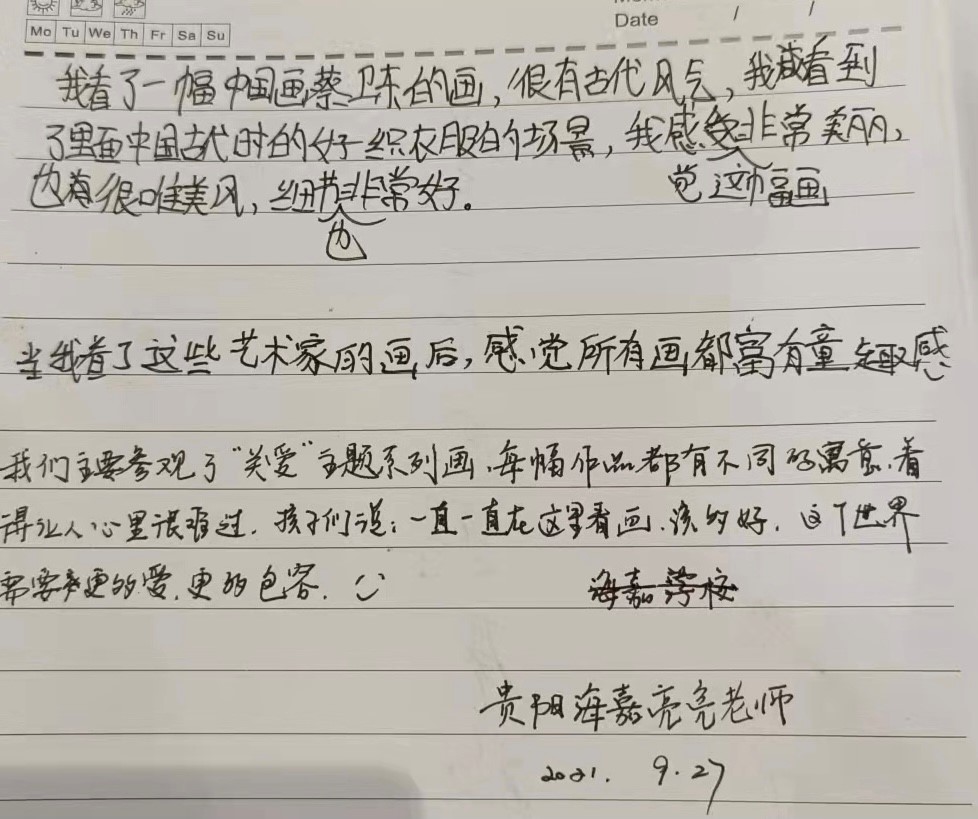 Mo Tu We Th Fr Sa Su
Date / /
我看了一幅中国画蔡卫东的画,很有古代风气,我看到
了里面中国古代时的女子织衣服的场景,我感觉这幅画非常美丽,
也有很唯美风,细节也非常好。
当我看了这些艺术家的画后,感觉所有画都富有童趣感
我们主要参观了“关爱”主题系列画、每幅作品都有不同的寓意、看
得让人心里很难过. 孩子们说:一直一直在这里看画、该多好. 这个世界
需要更多的爱. 更多的包容.
海嘉学校
贵阳海嘉亮亮老师
2021. 9.27